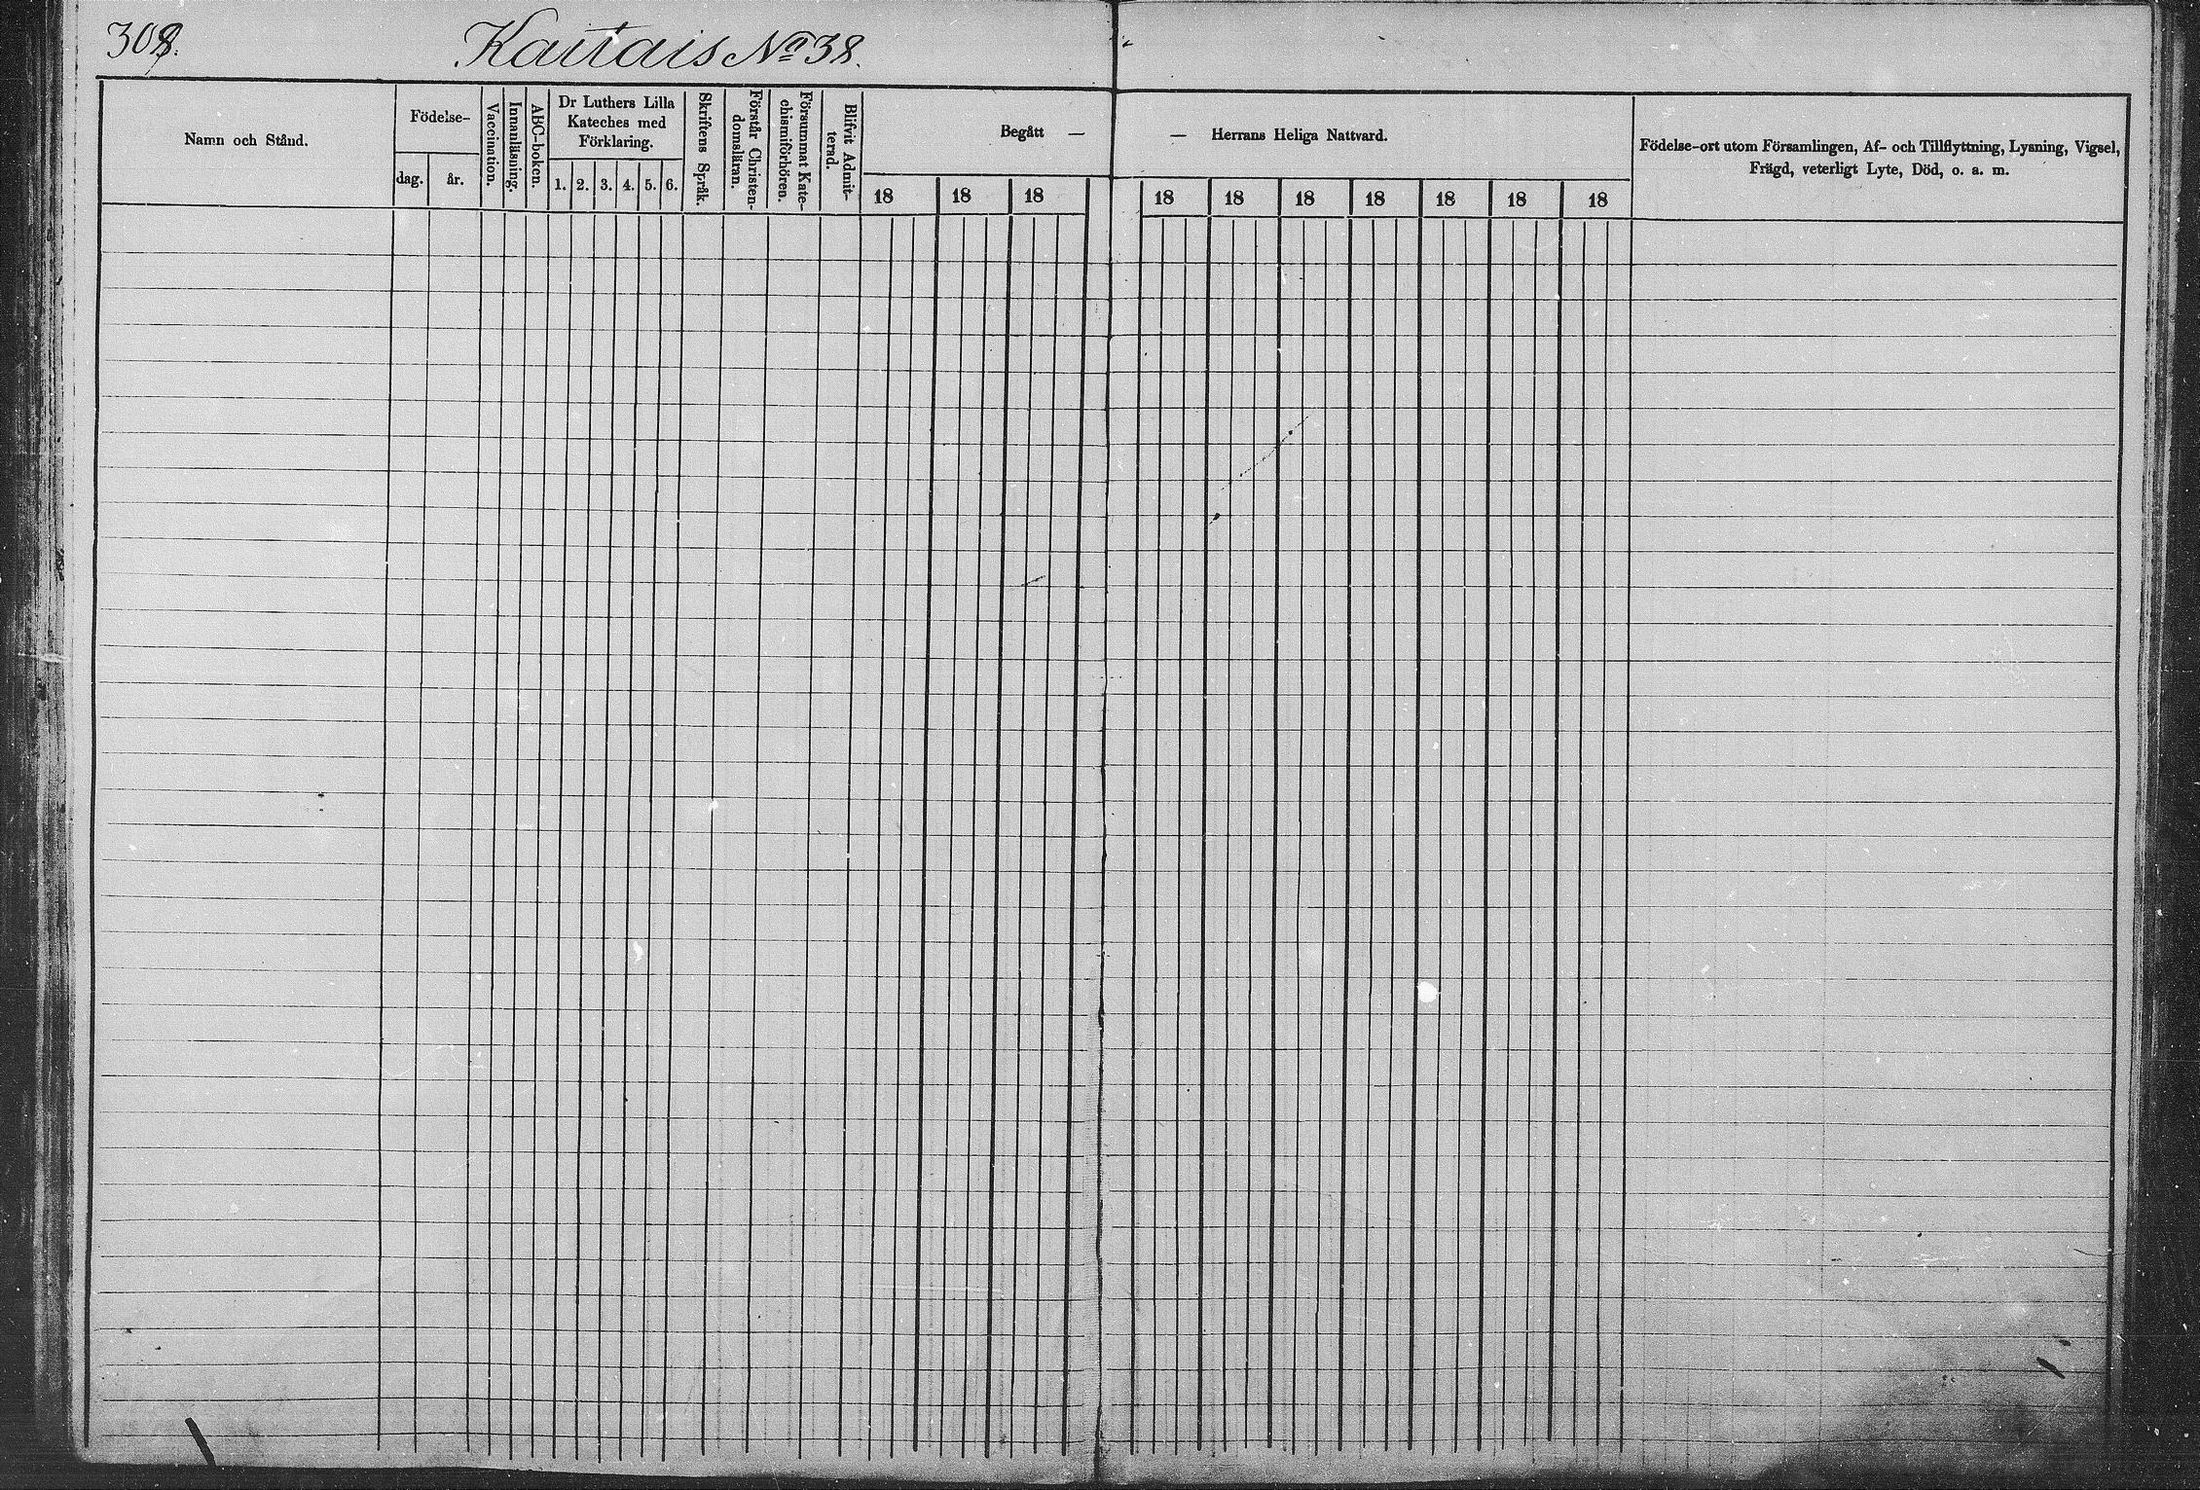 308.
Kaitais No 38.
Namn och Stånd.
Födelse-
dag.
år.
Vaccination.
Innanläsning.
ABC-boken.
Dr Luthers Lilla
Kateches med
Förklaring.
1. 2. 3. 4. 5. 6.
Skriftens Språk.
Förstår Christen-
domsläran.
Försummat Kate-
chismiförhören.
Blifvit Admit-
terad.
Begått —
18 18 18
— Herrans Heliga Nattvard.
18 18 18 18 18 18 18
Födelse-ort utom Församlingen, Af- och Tillflyttning, Lysning, Vigsel,
Frägd, veterligt Lyte, Död, o. a. m.